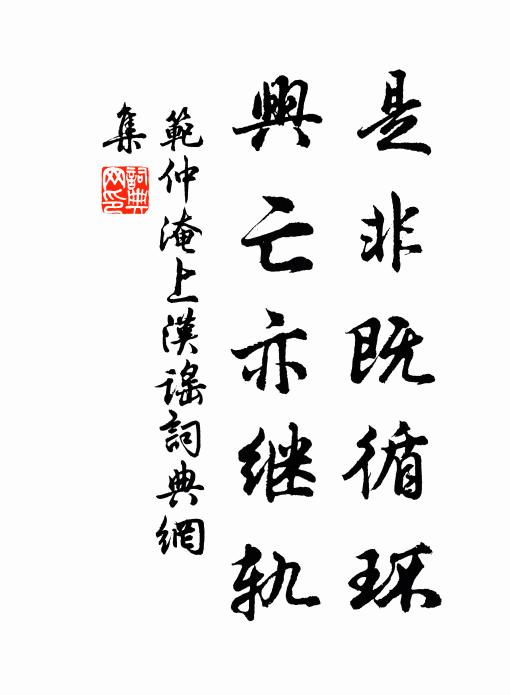 是非既循环
興亡亦继軌
範仲淹上漢謠詞典網
集
詞典
网印